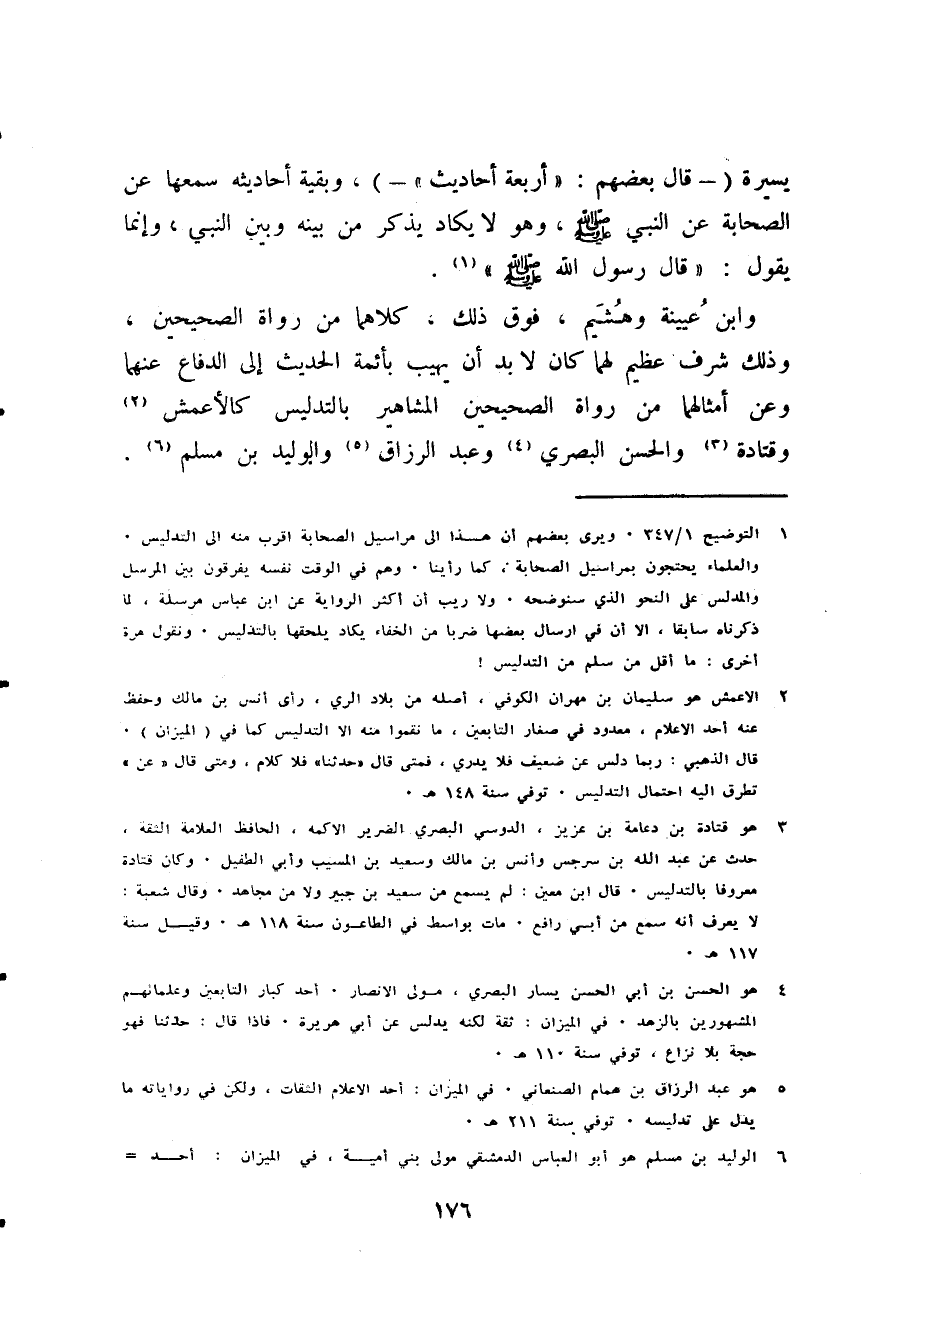 يسيرة ( – قال بعضهم : « أربعة أحاديث » – ) ، وبقية أحاديثه سمعها عن
الصحابة عن النبي ﷺ ، وهو لا يكاد يذكر من بينه وبين النبي ، وإنما
يقول : « قال رسول الله ﷺ » (١) .
وابن عُيينة وهُشَيم ، فوق ذلك ، كلاهما من رواة الصحيحين ،
وذلك شرف عظيم لهما كان لا بد أن يهيب بأئمة الحديث إلى الدفاع عنهما
وعن أمثالهما من رواة الصحيحين المشاهير بالتدليس كالأعمش (٢)
وقتادة (٣) والحسن البصري (٤) وعبد الرزاق (٥) والوليد بن مسلم (٦) .
١ التوضيح ٣٤٧/١ . ويرى بعضهم أن هـذا الى مراسيل الصحابة اقرب منه الى التدليس .
والعلماء يحتجون بمراسيل الصحابة ، كما رأينا . وهم في الوقت نفسه يفرقون بين المرسل
والمدلس على النحو الذي سنوضحه . ولا ريب أن أكثر الرواية عن ابن عباس مرسلة ، لما
ذكرناه سابقا ، الا أن في ارسال بعضها ضربا من الخفاء يكاد يلحقها بالتدليس . ونقول مرة
أخرى : ما أقل من سلم من التدليس !
٢ الاعمش هو سليمان بن مهران الكوفي ، أصله من بلاد الري ، رأى أنس بن مالك وحفظ
عنه أحد الاعلام ، معدود في صغار التابعين ، ما نقموا منه الا التدليس كما في ( الميزان ) .
قال الذهبي : ربما دلس عن ضعيف فلا يدري ، فمتى قال «حدثنا» فلا كلام ، ومتى قال « عن »
تطرق اليه احتمال التدليس . توفي سنة ١٤٨ هـ .
٣ هو قتادة بن دعامة بن عزيز ، الدوسي البصري الضرير الاكمه ، الحافظ العلامة الثقة ،
حدث عن عبد الله بن سرجس وأنس بن مالك وسعيد بن المسيب وأبي الطفيل . وكان قتادة
معروفا بالتدليس . قال ابن معين : لم يسمع من سعيد بن جبير ولا من مجاهد . وقال شعبة :
لا يعرف أنه سمع من أبي رافع . مات بواسط في الطاعـون سنة ١١٨ هـ . وقيـل سنة
١١٧ هـ .
٤ هو الحسن بن أبي الحسن يسار البصري ، مـولى الانصار . أحد كبار التابعين وعلمائهـم
المشهورين بالزهد . في الميزان : ثقة لكنه يدلس عن أبي هريرة . فاذا قال : حدثنا فهو
حجة بلا نزاع ، توفي سنة ١١٠ هـ .
٥ هو عبد الرزاق بن همام الصنعاني . في الميزان : أحد الاعلام الثقات ، ولكن في رواياته ما
يدل على تدليسه . توفي سنة ٢١١ هـ .
٦ الوليد بن مسلم هو أبو العباس الدمشقي مولى بني أميـة ، في الميزان : أحـد =
١٧٦